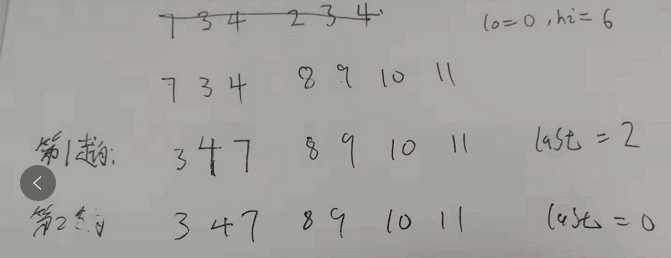 7 3 4 2 3 4 lo=0, hi=6
7 3 4 8 9 10 11
第1趟: 3 4 7 8 9 10 11 last = 2
第2趟 3 4 7 8 9 10 11 last = 0